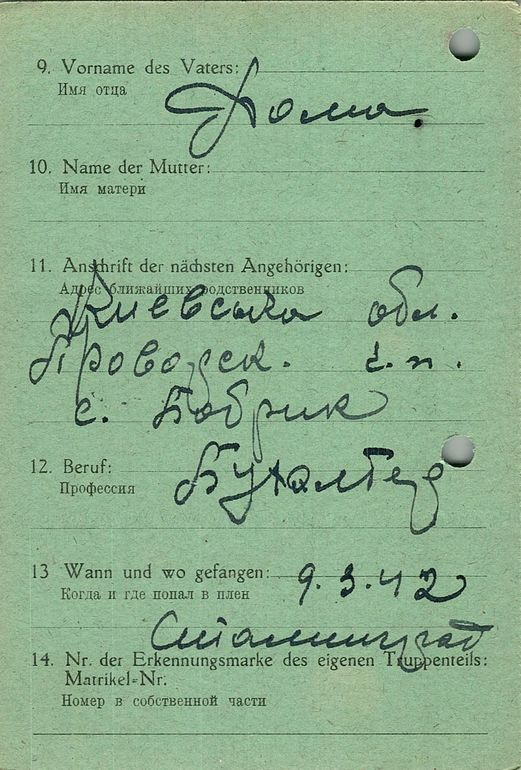 9. Vorname des Vaters:
Имя отца
Фома
10. Name der Mutter:
Имя матери
11. Anschrift der nächsten Angehörigen:
Адрес ближайших родственников
Киевська обл.
с. Бобрик
12. Beruf:
Профессия
Бухалтер
13 Wann und wo gefangen:
Когда и где попал в плен
9.3.42
Сталинград
14. Nr. der Erkennungsmarke des eigenen Truppenteils:
Matrikel-Nr.
Номер в собственной части